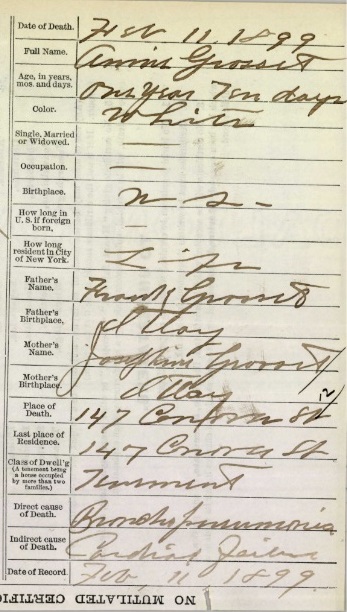 Date of Death. Feb 11 1899
Full Name. Annie Grosset
Age, in years, mos. and days. One Year Ten days
Color. White
Single, Married or Widowed. —
Occupation. —
Birthplace. N S -
How long in U. S. if foreign born, —
How long resident in City of New York. Life
Father's Name. Frank Grosset
Father's Birthplace. Italy
Mother's Name. Josephine Grosset
Mother's Birthplace. Italy
Place of Death. 147 St 12/
Last place of Residence. 147 St
Class of Dwell'g (A tenement being a house occupied by more than two families.) Tenement
Direct cause of Death. Broncho pneumonia
Indirect cause of Death. Cardiac Failure
Date of Record. Feb, 11 1899
NO MUTILATED CERTIFIC